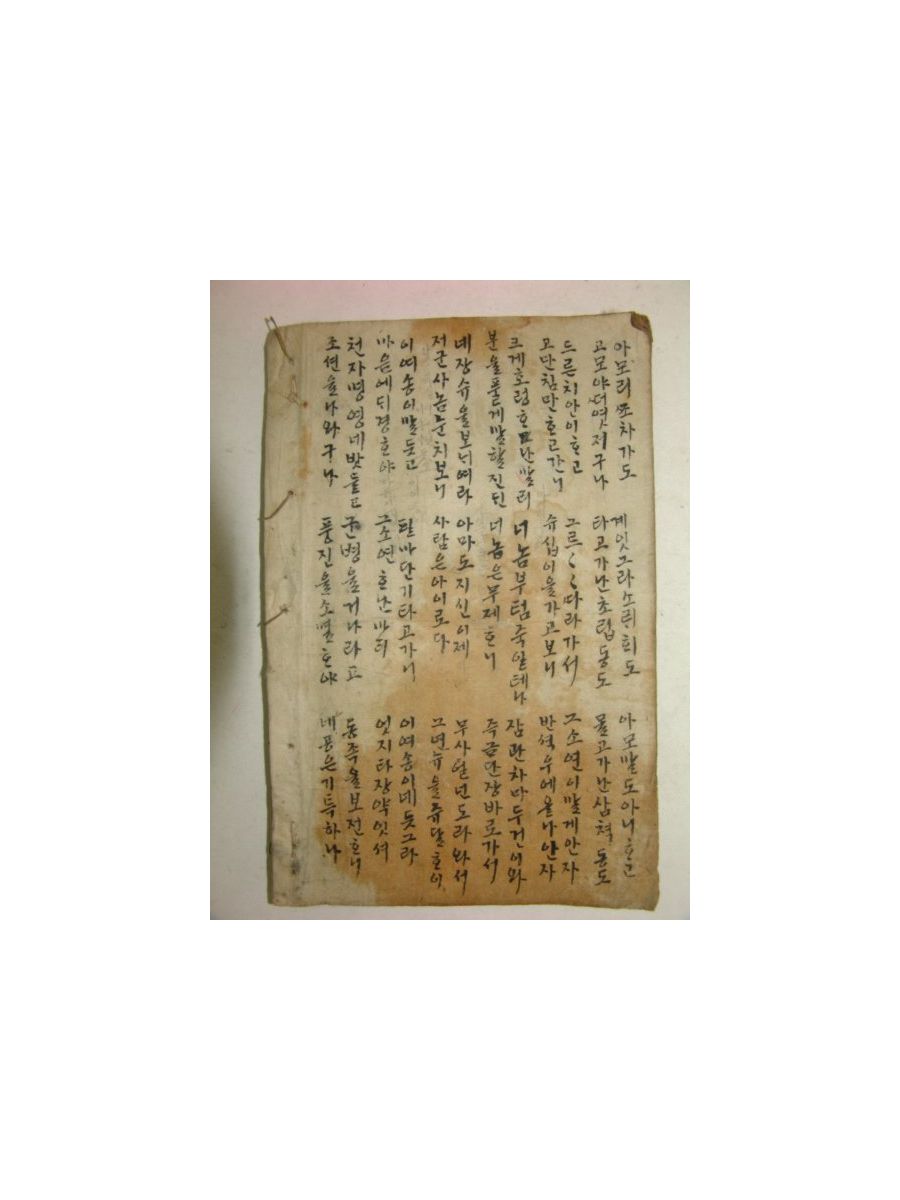 아모리 쪼차가도 계잇그라 소릭희도 아모말도 아니ᄒᆞ고
고모야 더엿저구나 타고가난 초립동도 몰고가난 삼척동도
드른치 안이ᄒᆞ고 그르〱 따라가서 그소연이 말게안자
고단참만 ᄒᆞ고간니 슈십이을 가고보니 반석우에 올나안자
크게호령 ᄒᆞ난말리 너놈부텀 죽일테나 잠관차마 두건이와
분을풀게 말할진딘 너놈은 부제ᄒᆞ니 죽금단장 바로가서
네장슈을 보닉여라 아마도 지신이제 무사일넌 도라와서
저군사놈 눈치보니 사람은 아이로다 그연슈을 쥬달ᄒᆞ이
이여송이 말듯고 필마단기 타고가니 이여송이 네듯그라
마음에 딕경ᄒᆞ야 그소연 ᄒᆞ난마리 엇지타 장약잇셔
천자명영 네밧들고 군병을 거나리고 동족을 보전ᄒᆞ니
조션을 나와구나 풍진을 소멸ᄒᆞ야 네공은 기특하나